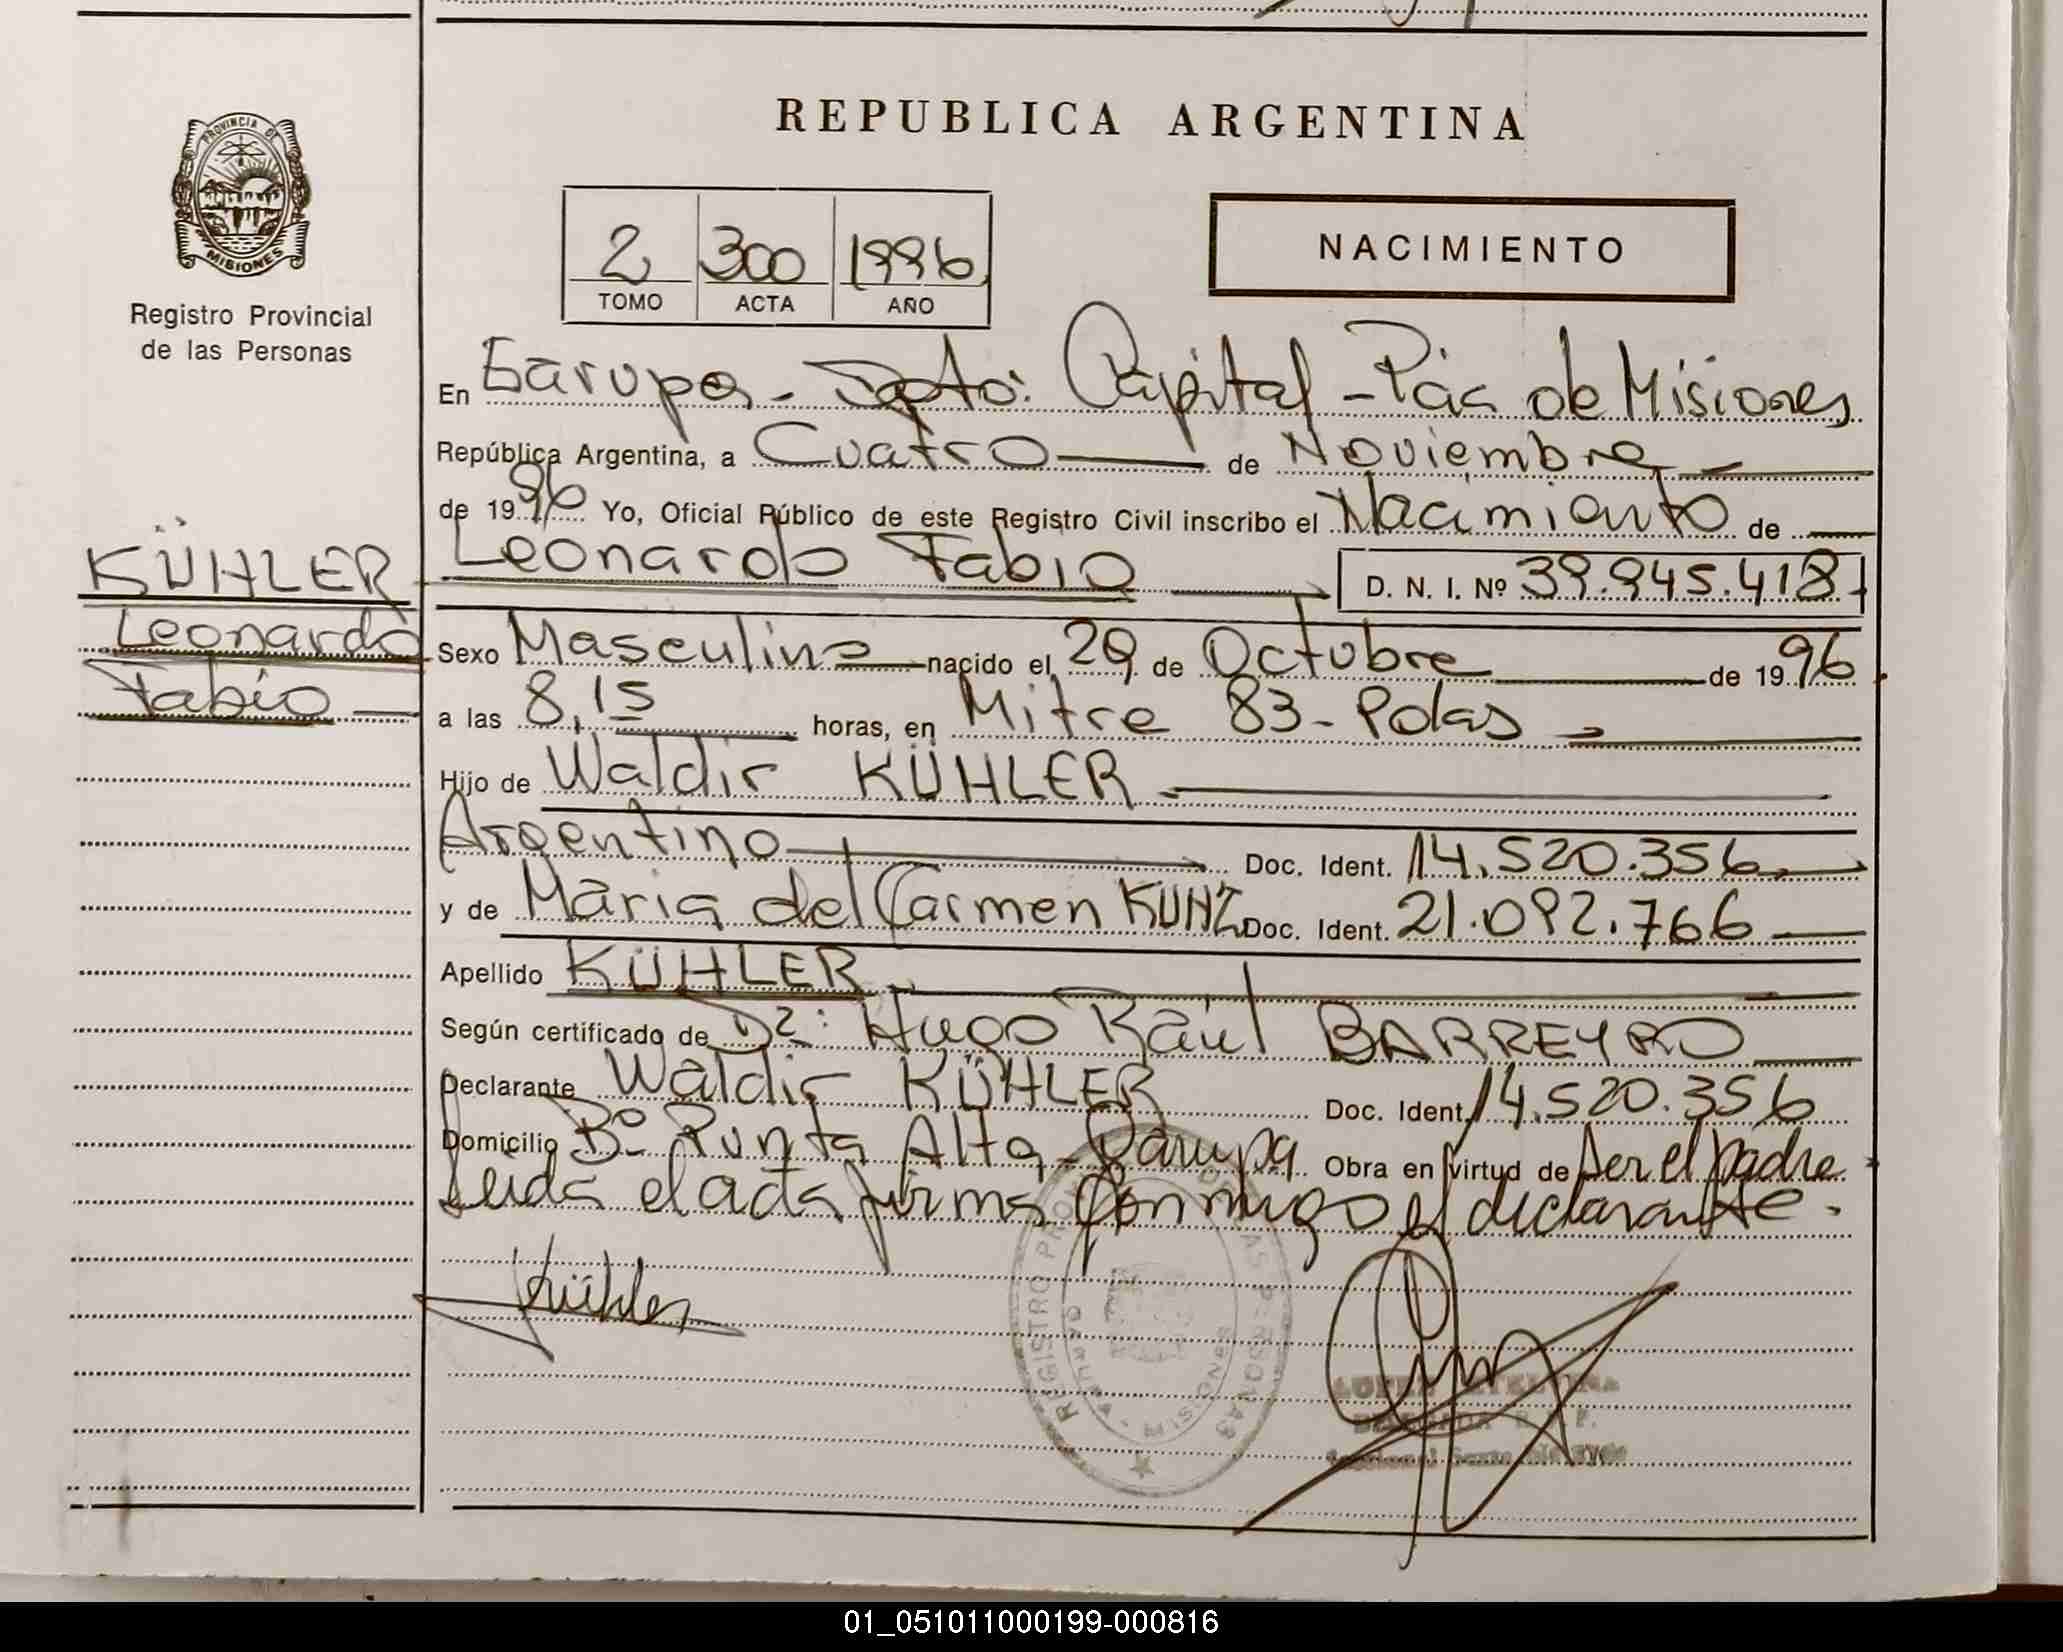 REPUBLICA ARGENTINA
PROVINCIA DE
MISIONES
Registro Provincial
de las Personas
2 300 1996
TOMO ACTA AÑO
NACIMIENTO
En Garupa - Dpto: Capital - Pcia de Misiones
República Argentina, a Cuatro de Noviembre
de 1996 Yo, Oficial Público de este Registro Civil inscribo el Nacimiento de
Leonardo Fabio D. N. I. Nº 39.945.418
KÜHLER
Leonardo
Fabio
Sexo Masculino nacido el 29 de Octubre de 1996
a las 8,15 horas, en Mitre 83 - Pdas
Hijo de Waldir KÜHLER
Argentino Doc. Ident. 14.520.356
y de Maria del Carmen KUNZ Doc. Ident. 21.092.766
Apellido KÜHLER
Según certificado de Dr: Hugo Raúl BARREYRO
Declarante Waldir KÜHLER Doc. Ident. 14.520.356
Domicilio Bº Punta Alta - Garupa Obra en virtud de ser el padre
Leida el acta firma conmigo el declarante.
Kühler
REGISTRO PROV DE LAS PERSONAS
GARUPA - MISIONES
01_051011000199-000816